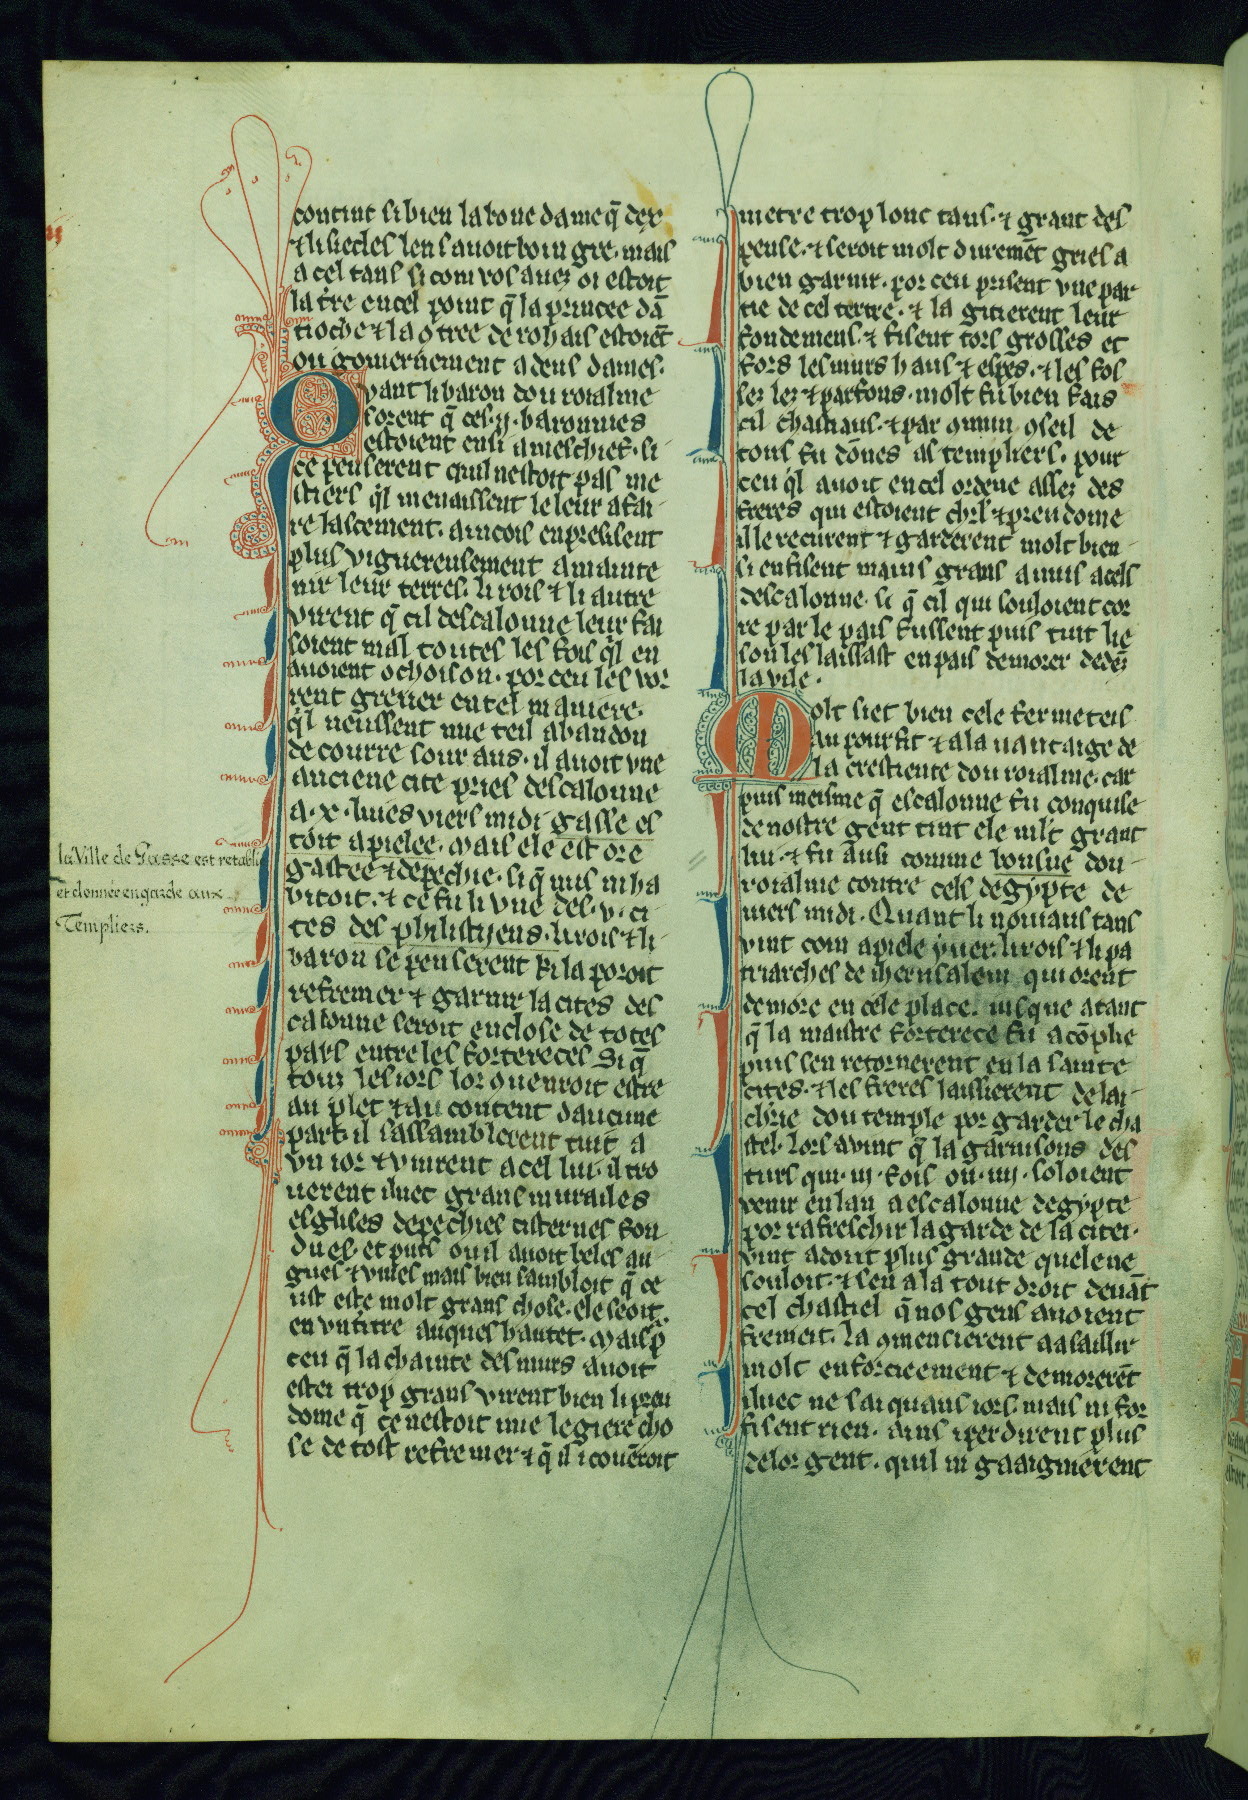 contint si bien la bone dame q̄ dex
⁊ li siecles len sauoit boin gre. mais
a cel tans si com vos auez oi estoit
la tr̄e en cel point q̄ la princee dā
tioche ⁊ la ɔtree de rohais estoiēt
ou gouuernement a deus dames.
Quant li baron dou roialme
sorent q̄ ces .ij. baronnies
estoient ensi a meschief. si
ce penserent quil nestoit pas me
stiers q̇l menaissent le leur afai
re lascement. aincois enpresissent
plus viguereusement a mainte
nir leur terres. li rois ⁊ li autre
virent q̄ cil descalonne leur fai
soient mal toutes les fois q̇l en
auoient ochoison. por ceu les vor
rent greuer en tel maniere.
q̇l neussent mie teil abandon
de courre sour aus. il auoit vne
anciene cite pries descalonne
a .x. liues viers midi gasse es
toit apielee. mais ele est ore
gastee ⁊ depechie. si q̄ nus ni ha
bitoit. ⁊ ce fu li vne des .v. ci
tes des philistijens. li rois ⁊ li
baron se penserent ki la poroit
refremer ⁊ garnir la cites des
calonne seroit enclose de totes
pars entre les fortereces Si q̄
touz les iors lor ɔuenroit estre
au plet ⁊ au content daucune
part. il sassamblerent tuit a
vn ior ⁊ vinrent a cel liu. il tro
uerent iluec grans murailes
esglises depechies cisternes fon
dues. et puis ou il auoit beles au
gues ⁊ viues mais bien sambloit q̄ ce
ust este molt grans chose. ele seoit
en vn tertre auques hautet. mais p̄
ceu q̄ la chainte des murs auoit
estei trop grans virent bien li preu
dome q̄ ce nestoit mie legiere cho
se de tost refremer ⁊ q̄ il i couēroit
la Ville de Gasse est retabli
et donnée en garde aux
Templiers.
metre trop lonc tans. ⁊ grant des
pense. ⁊ seroit molt duremēt gries a
bien garnir. por ceu prisent vne par
tie de cel tertre. ⁊ la gitierent leur
fondemens. ⁊ fisent tors grosses et
fors les murs haus ⁊ espes. ⁊ les fos
sez lez ⁊ parfons. molt fu bien fais
cil chastiaus. ⁊ par ɔmun ɔseil de
tous fu dōnes as templiers. pour
ceu q̇l auoit en cel ordene assez des
freres qui estoient chr̄s ⁊ preudome
il le recurent ⁊ garderent molt bien
si en fisent mains grans anuis a cels
descalonne. si q̄ cil qui souloient cor
re par le pais fussent puis tuit lie
son les laissast en pais demorer dedēz
la vile.
Molt siet bien cele fermeteis
au pourfit ⁊ a la uantaige de
la crestiente dou roialme. car
puis meisme q̄ escalonne fu conquise
de nostre gent tint ele mlt grant
liu. ⁊ fu ausi comme bonsne dou
roialme contre cels degypte de
uiers midi. Quant li nouiaus tans
vint com apiele yuer. li rois ⁊ li pa
triarches de iherusalem qui orent
demore en cele place. iusque atant
q̄ la maistre forterece fu acōplie
puis sen retornerent en la sainte
cites. ⁊ les freres laissierent de lai
chr̄ie dou temple por garder le cha
stel. lors auint q̄ la garnisons des
turs qui .iij. fois ou .iiij. soloient
venir en lan a escalonne degypte
por rafreschir la garde de la citei.
vint adont plus grande quele ne
souloit. ⁊ sen ala tout droit deuāt
cel chastiel q̄ nos gens auoient
fremeit. la ɔmencierent a asaillir
molt enforcieement ⁊ demorerēt
iluec ne sai quans iors. mais ni for
fisent rien. ains i perdirent plus
de lor gent. quil ni gaaignierent